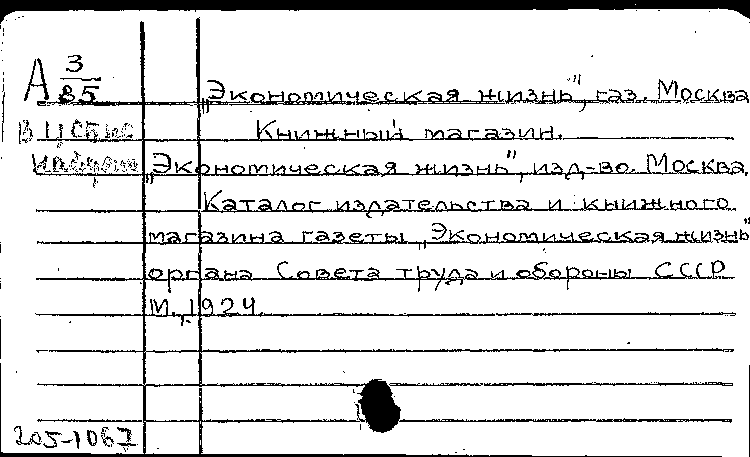 А З/85
„Экономическая жизнь", газ. Москва
Книжный магазин.
„Экономическая жизнь", изд-во. Москва.
Каталог издательства и книжного
магазина газеты „Экономическая жизнь"
органа Совета труда и обороны СССР
М., 1924.
205-1067